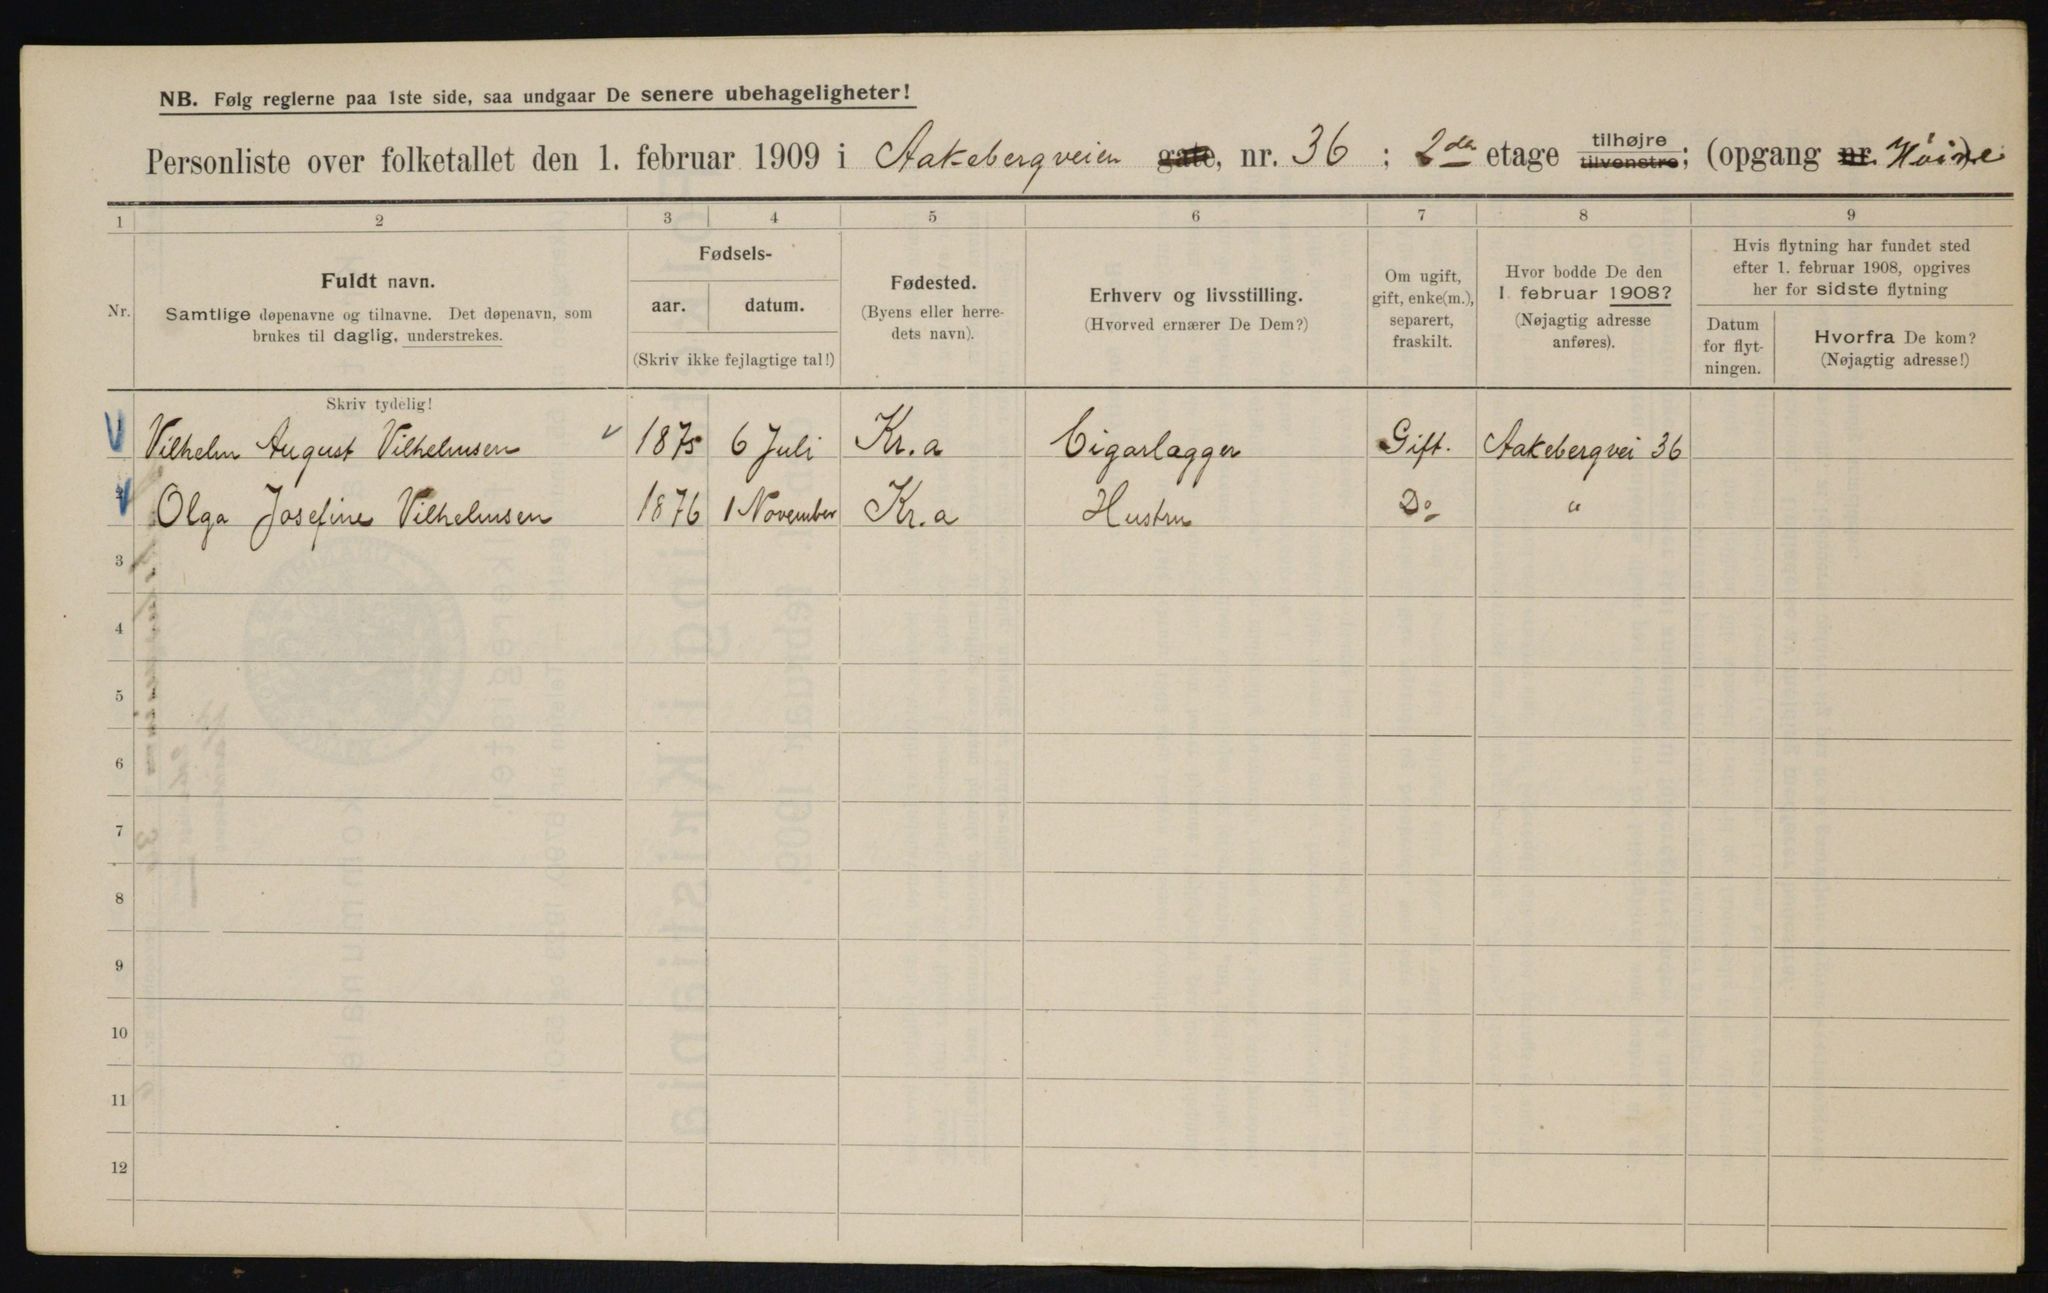 NB. Følg reglerne paa 1ste side, saa undgaar De senere ubehageligheter!
Personliste over folketallet den 1. februar 1909 i Aakebergveien gate, nr. 36 ; 2den etage tilhøjre tilvenstre; (opgang nr. Høire)
1 2 3 4 5 6 7 8 9
Nr.
Fuldt navn.
Samtlige døpenavne og tilnavne. Det døpenavn, som
brukes til daglig, understrekes.
Fødsels-
aar. datum.
(Skriv ikke fejlagtige tal!)
Fødested.
(Byens eller herre-
dets navn).
Erhverv og livsstilling.
(Hvorved ernærer De Dem?)
Om ugift,
gift, enke(m.),
separert,
fraskilt.
Hvor bodde De den
1. februar 1908?
(Nøjagtig adresse
anføres).
Hvis flytning har fundet sted
efter 1. februar 1908, opgives
her for sidste flytning
Datum
for flyt-
ningen.
Hvorfra De kom?
(Nøjagtig adresse!)
Skriv tydelig!
Vilhelm August Vilhelmsen 1875 6 Juli Kr.a Cigarlægger Gift. Aakebergvei 36
Olga Josefine Vilhelmsen 1876 1 November Kr.a Hustru Do "
3
4
5
6
7
8
9
10
11
12